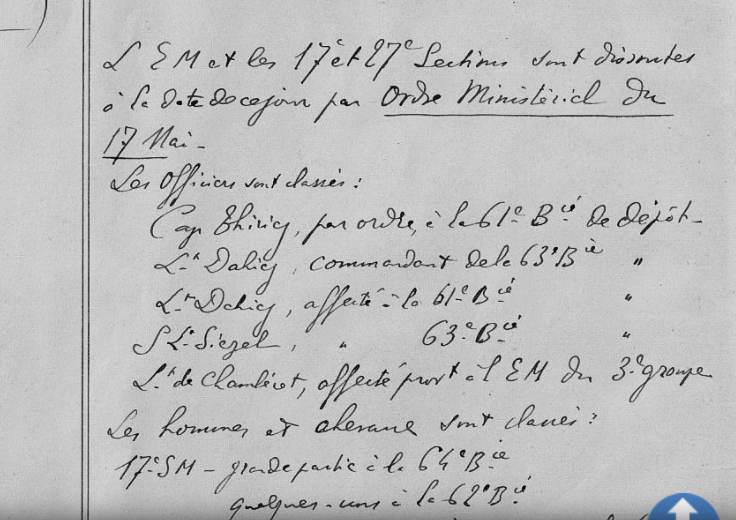 L'EM et les 17e et 27e Sections sont dissoutes
à la date de ce jour par Ordre Ministériel du
17 Mai -
Les Officiers sont classés :
Cap Thiriez, par ordre, à la 61e Bie de dépôt -
Lt Dahiez, commandant de la 63e Bie "
Lt Dehiez, affecté à la 61e Bie "
S Lt Siegel, " 63e Bie "
Lt de Chambéret, affecté provt à l'EM du 3e groupe
Les hommes et chevaux sont classés :
17e SM - grande partie à la 64e Bie
quelques-uns à la 62e Bie